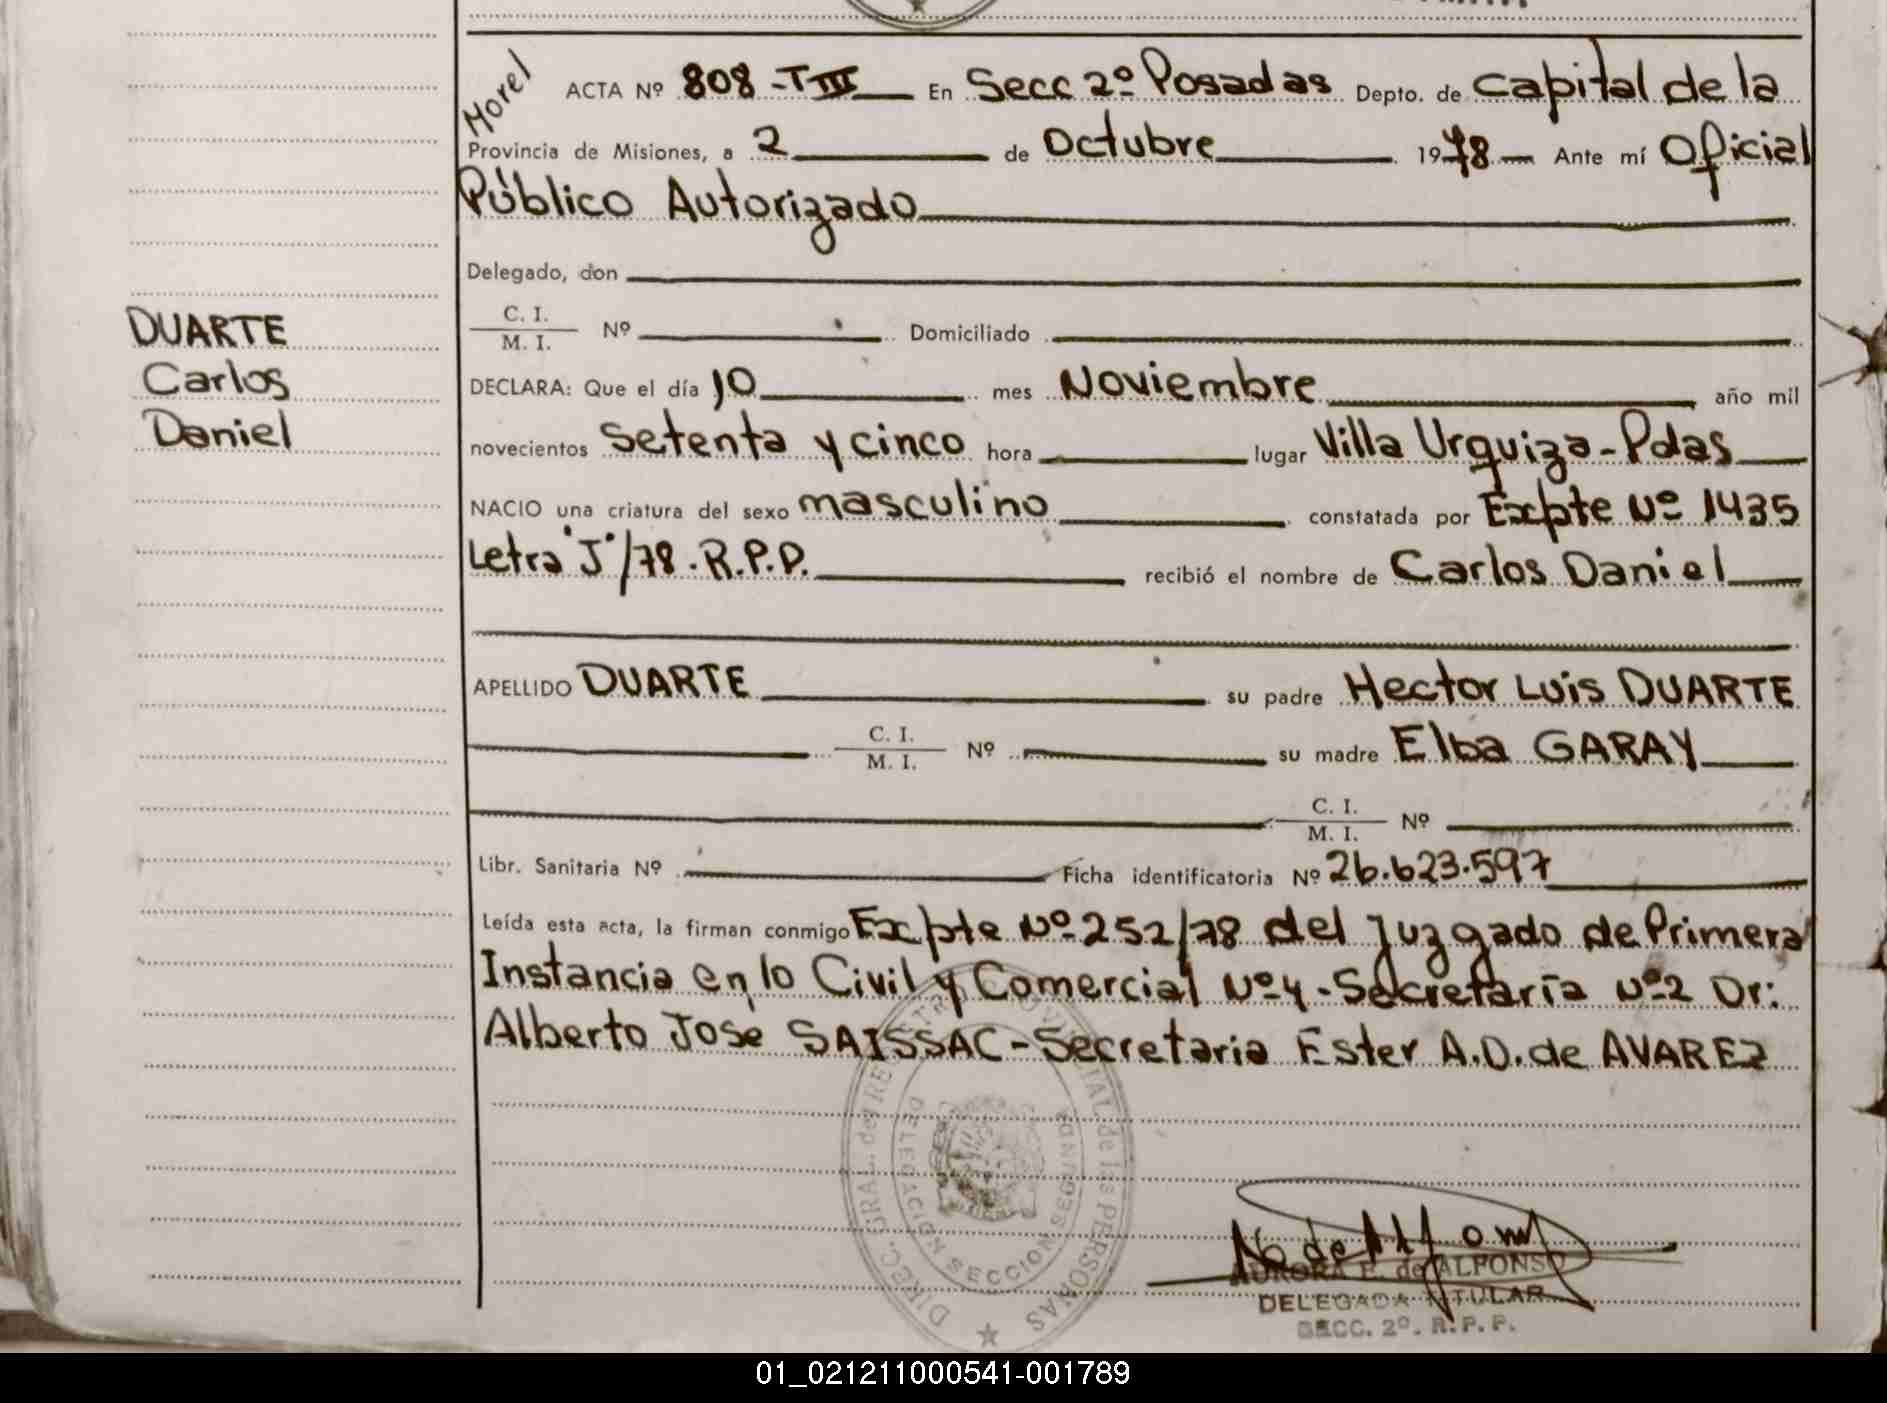 Morel
ACTA Nº 808-TIII En Secc 2º Posadas Depto. de Capital de la
Provincia de Misiones, a 2 de Octubre 1978 Ante mí Oficial
Público Autorizado
Delegado, don
C. I.
M. I. Nº Domiciliado
DUARTE
Carlos
Daniel
DECLARA: Que el día 10 mes Noviembre año mil
novecientos Setenta y cinco hora lugar Villa Urquiza-Pdas
NACIO una criatura del sexo masculino constatada por Expte Nº 1435
Letra "J"/78.R.P.P. recibió el nombre de Carlos Daniel
APELLIDO DUARTE su padre Hector Luis DUARTE
C. I.
M. I. Nº su madre Elba GARAY
C. I.
M. I. Nº
Libr. Sanitaria Nº Ficha identificatoria Nº 26.623.597
Leída esta acta, la firman conmigo Expte Nº 252/78 del Juzgado de Primera
Instancia en lo Civil y Comercial Nº4-Secretaría Nº2 Dr:
Alberto Jose SAISSAC-Secretaria Ester A.D.de AVAREZ
DIREC. GRAL. del REGISTRO PROVINCIAL de las PERSONAS
DELEGACION SECCION SEGUNDA
AURORA E. de ALFONSO
DELEGADA TITULAR
SECC. 2º. R.P.P.
01_021211000541-001789